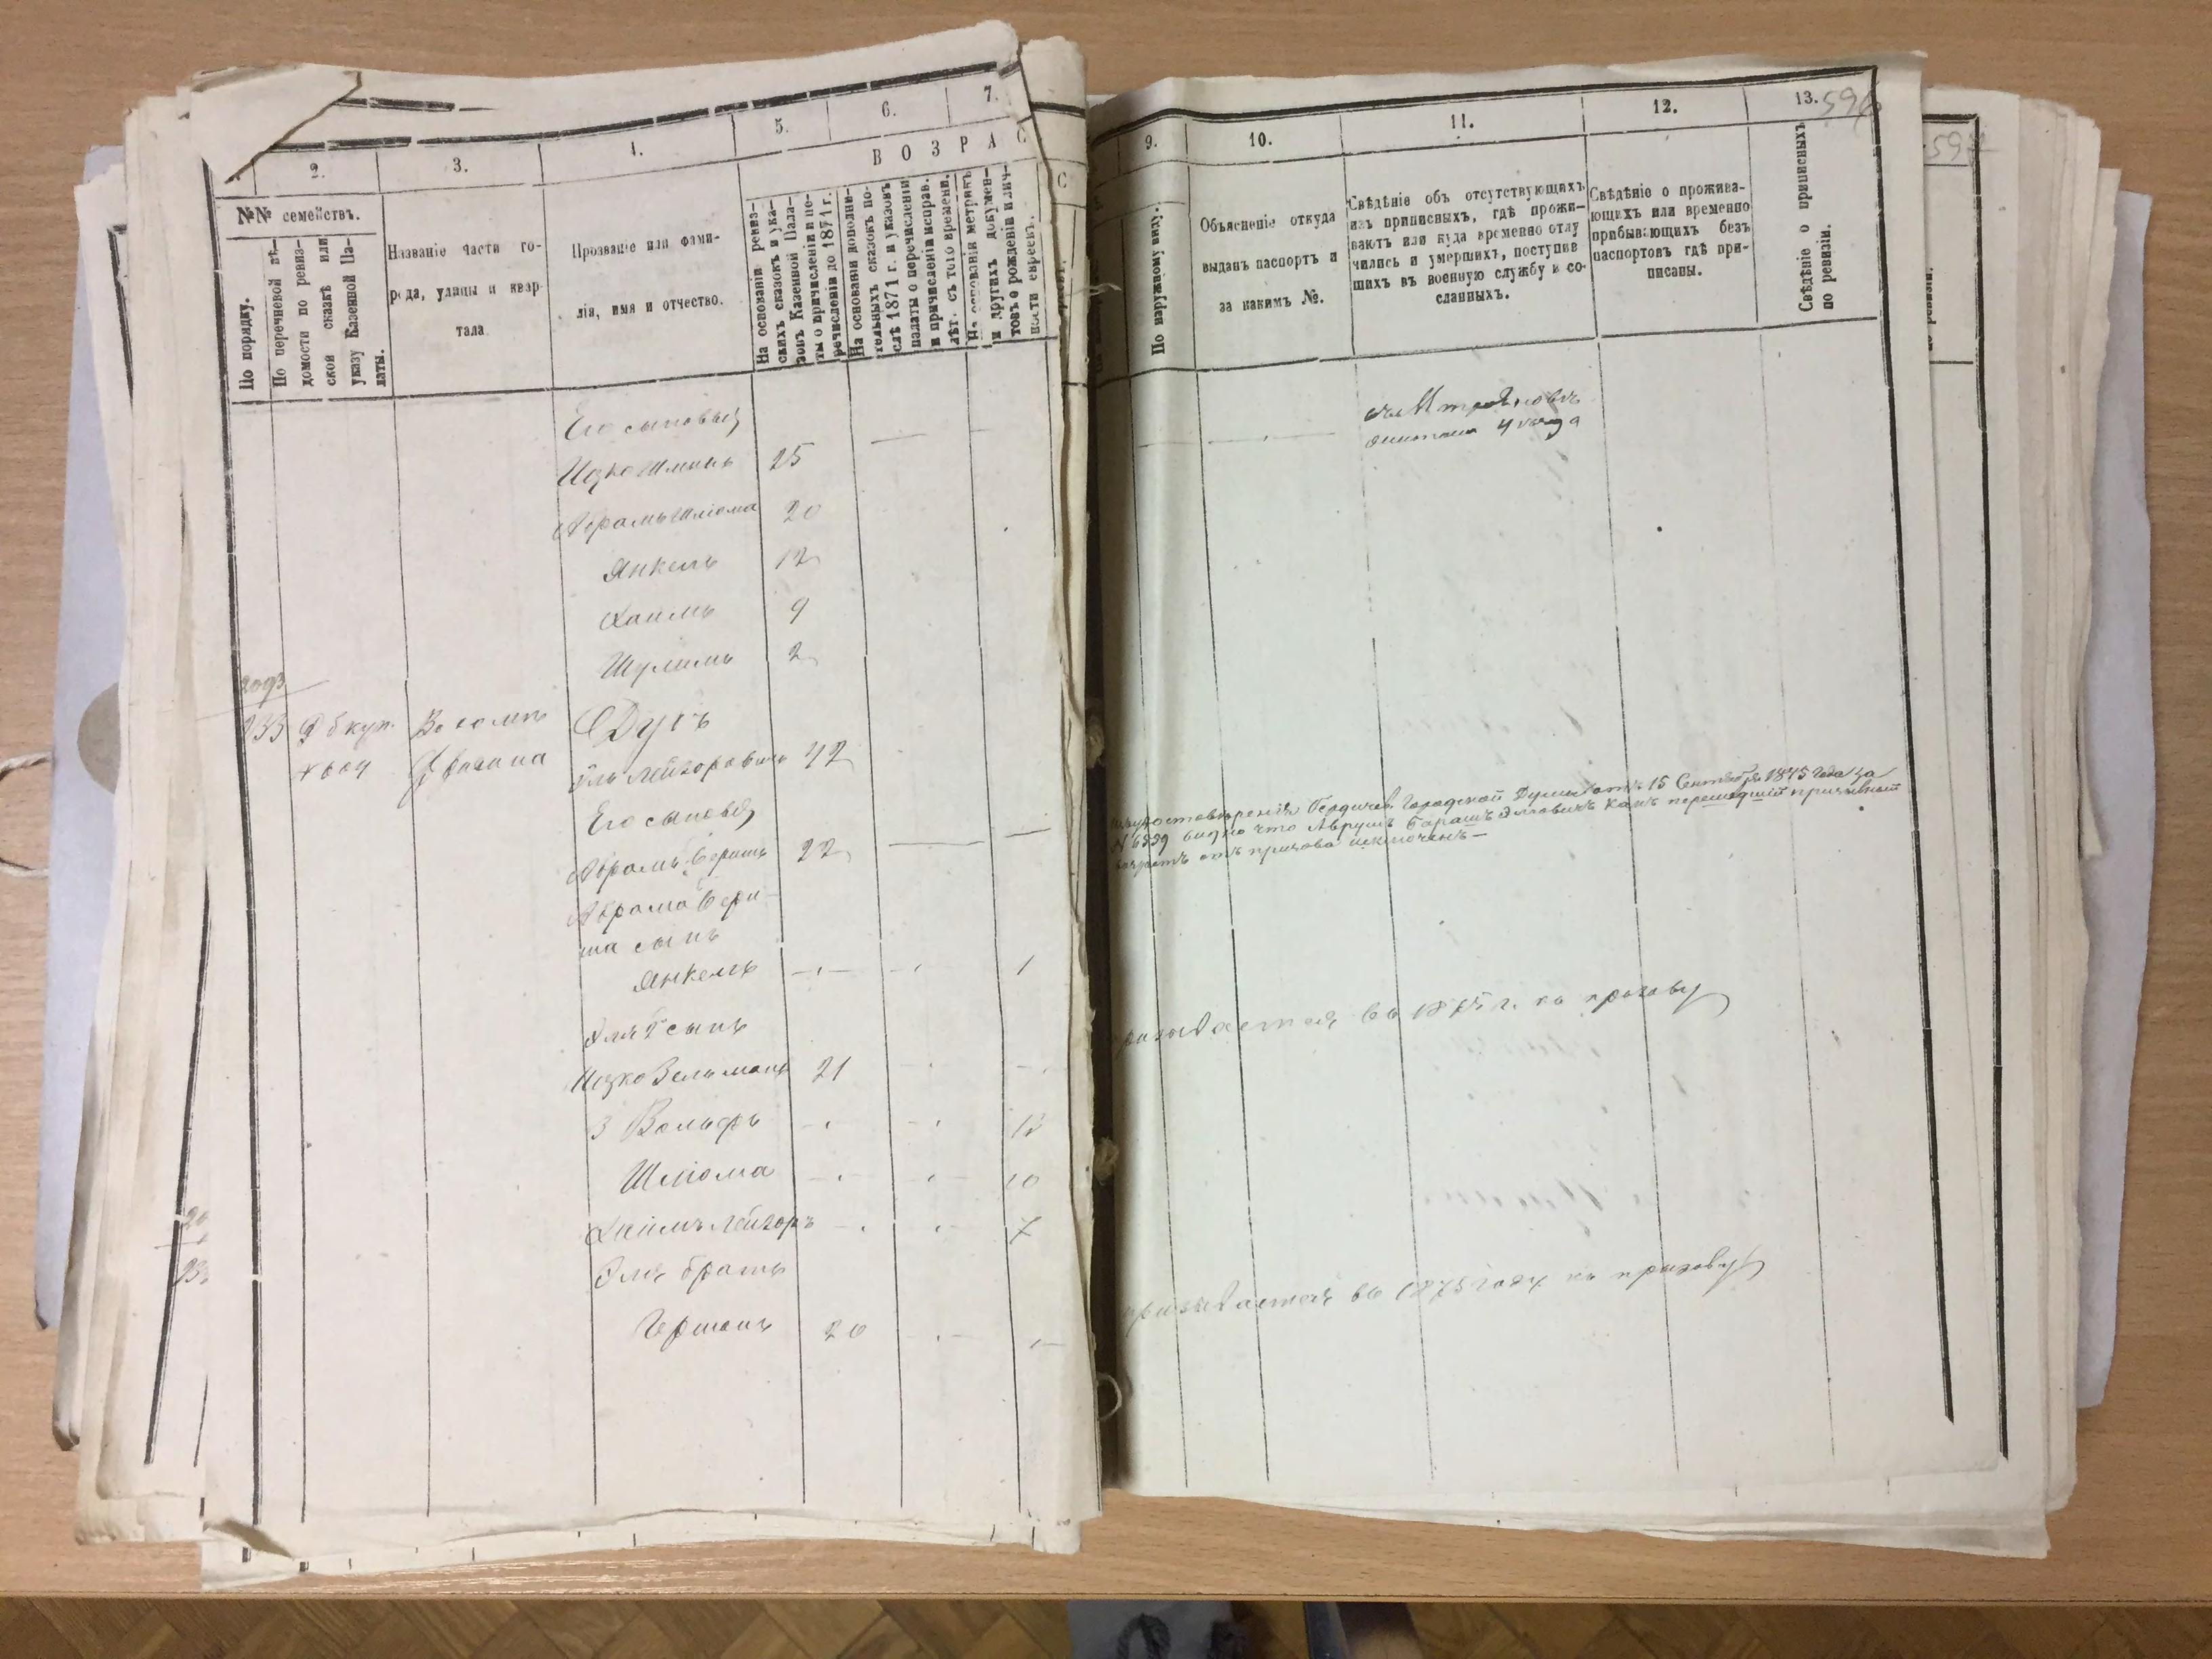 2.
3.
4.
5.
6.
7.
ВОЗРАС
С
№№ семействъ.
По порядку.
По перечневой вѣ-
домости по ревиз-
ской сказкѣ или
указу Казенной Па-
латы.
Названіе части го-
рода, улицы и квар-
тала
Прозваніе или фами-
лія, имя и отчество.
На основаніи ревиз-
скихъ сказокъ и ука-
зовъ Казенной Пала-
ты о причисленіи и пе-
речисленіи до 1871 г.
На основаніи дополни-
тельныхъ сказокъ по-
слѣ 1871 г. и указовъ
палаты о перечисленіи
и причисленіи исправ.
лѣт. съ того времени.
На основаніи метрикъ
и другихъ докумен-
товъ о рожденіи и лич-
ности евреевъ.
Его сыновья
Ицко Шмиль 25
Абрамъ Шліома 20
Янкель 12
Хаимъ 9
Шулимъ 2
2093
933 2 б куп. Весемъ Дусъ
Эль Лейзоровичъ 42
Его сыновья
Абрамъ Беришъ 22
Абрама Бери-
ша сынъ
Янкель 1
Эля 2 сынъ
Ицко Зельманъ 21
3 Вольфъ 13
Шліома 10
Хаимъ Лейзоръ 7
Эля братъ
Гершонъ 20
9.
10.
11.
12.
13.
596
597
По наружному виду.
Объясненіе откуда
выданъ паспортъ и
за какимъ №.
Свѣдѣніе объ отсутствующихъ
изъ приписныхъ, гдѣ прожи-
ваютъ или куда временно отлу
чились и умершихъ, поступив
шихъ въ военную службу и со-
сланныхъ.
Свѣдѣніе о прожива-
ющихъ или временно
прибывающихъ безъ
паспортовъ гдѣ при-
писаны.
Свѣдѣніе о приписныхъ
по ревизіи.
Изъ удостовѣренія Бердичев. Городской Думы отъ 15 Сентября 1875 года за
№ 6539 видно что Аврумъ Барашъ Эліовичъ какъ перешедшій призывный
возрастъ отъ призова исключенъ —
призывается въ 1875 г. къ призову
призывается въ 1875 году къ призову